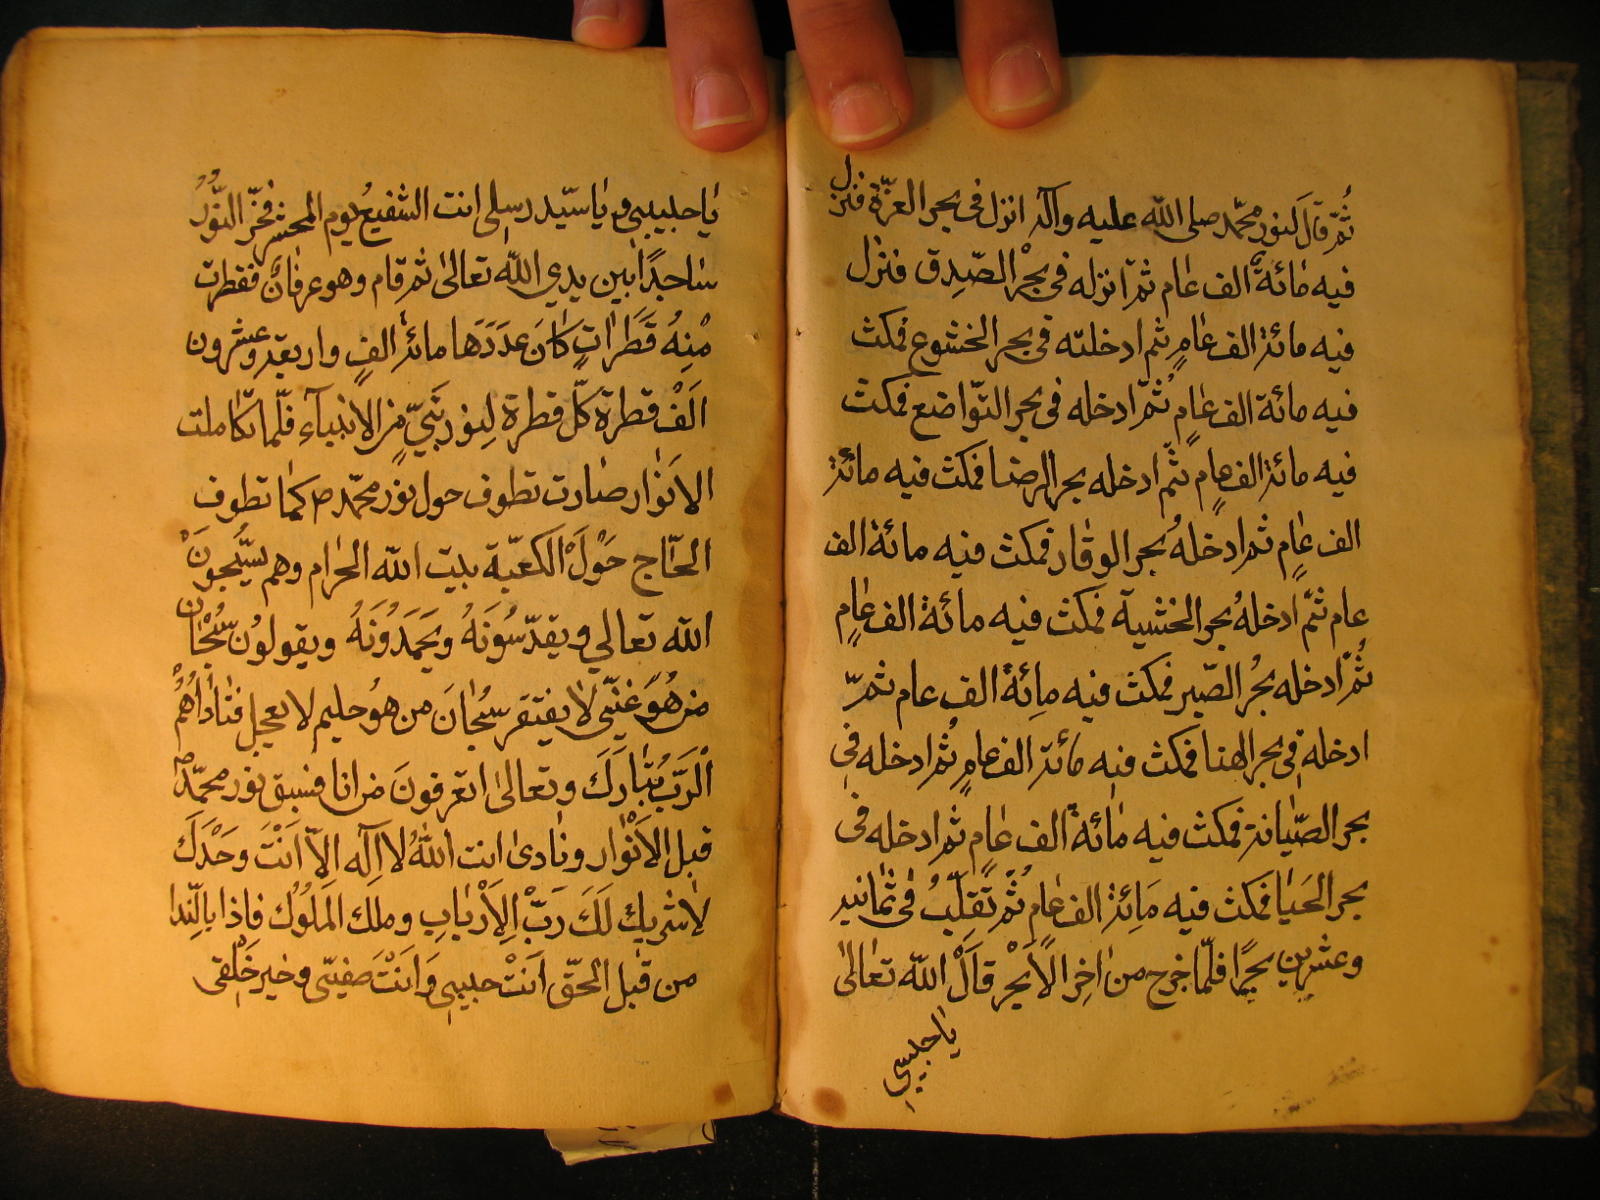 ثُمّ قال لنور محمّد صلى الله عليه وآله انزل فى بحر العزّة فنزل
فيه مٰائة الف عٰام ثمّ انزله فى بحْر الصّدِق فنزل
فيه مائة الف عٰامٍ ثم ادخلته فى بحر الخشوع فمكث
فيه مائة الف عٰامٍ ثُمّ ادخله فى بحر التّواضع فمكث
فيه مائة الف عٰامٍ ثمّ ادخله بحر الرضا فمكث فيه مائة
الف عٰامٍ ثم ادخلهُ بحر الوقار فمكث فيه مائة الف
عام ثمّ ادخلهُ بحر الخشية فمكث فيه مائة الف عٰامٍ
ثُمّ ادخله بحُر الصّبر فمكث فيه مِائة الف عام ثمّ
ادخله فى بحر الهنا فمكث فيه مائة الف عامٍ ثُم ادخله فى
بحر الصّيٰانة فمكث فيه مٰائة الف عٰامٍ ثم ادخله فى
بحر الحَيٰا فمكث فيه مَائة الف عٰامٍ ثُمّ تَقلّبُ فى ثمٰانية
وعشرين بحرًا فلمّا خرج من اٰخِر الْاَبحْر قالَ اللّه تعٰالىٰ
يٰا حبيبى
يٰا حبيبى و يٰا سيّد رسلى انت الشفيعُ يوم المحشر فخرّ النّورُ
سٰاجدًا بين يدي اللّه تعالىٰ ثم قام وهو عرقانٌ فقطرت
مْنِهُ قَطَرٰاتٍ كٰانَ عدَدَهَا مائة الفٍ واربعة وعشرون
الَفْ قطرة كلّ قطرة لِنور نَبيّ من الانبيآءِ فلّما تكٰاملت
الانَوٰار صٰارت تطوف حول نور محمّد ص كمٰا تطوف
الحٰاج حَوْلَ الكعبَة بيت اللّه الحرٰام وهم يسبّحونَ
اللّه تعالي ويقدّسُونَهُ ويَحمَدُونَهُ ويقولوُن سُبْحٰان
من هُوَ غَنيّ لاٰ يفتقر سُبحٰانَ من هوُ حليم لا يعجل فنٰادٰاهُمْ
الْرَبّ تبٰارَكَ وتعالىٰ اتعرفونَ من انا فسبق نور محمّد ص
قبل الاَنْوٰار ونٰادىٰ انت اللّٰهُ لا اِلٓه الاّ اَنْتَ وحْدَكَ
لٰا شريك لَكَ رَبّ اِلاَرْبٰابِ وملك المَلُوُك فاذا بالنِّدا
من قبل الحَقّ اَنتْ حبيبى وَاَنتْ صفيّى وخير خَلْقى